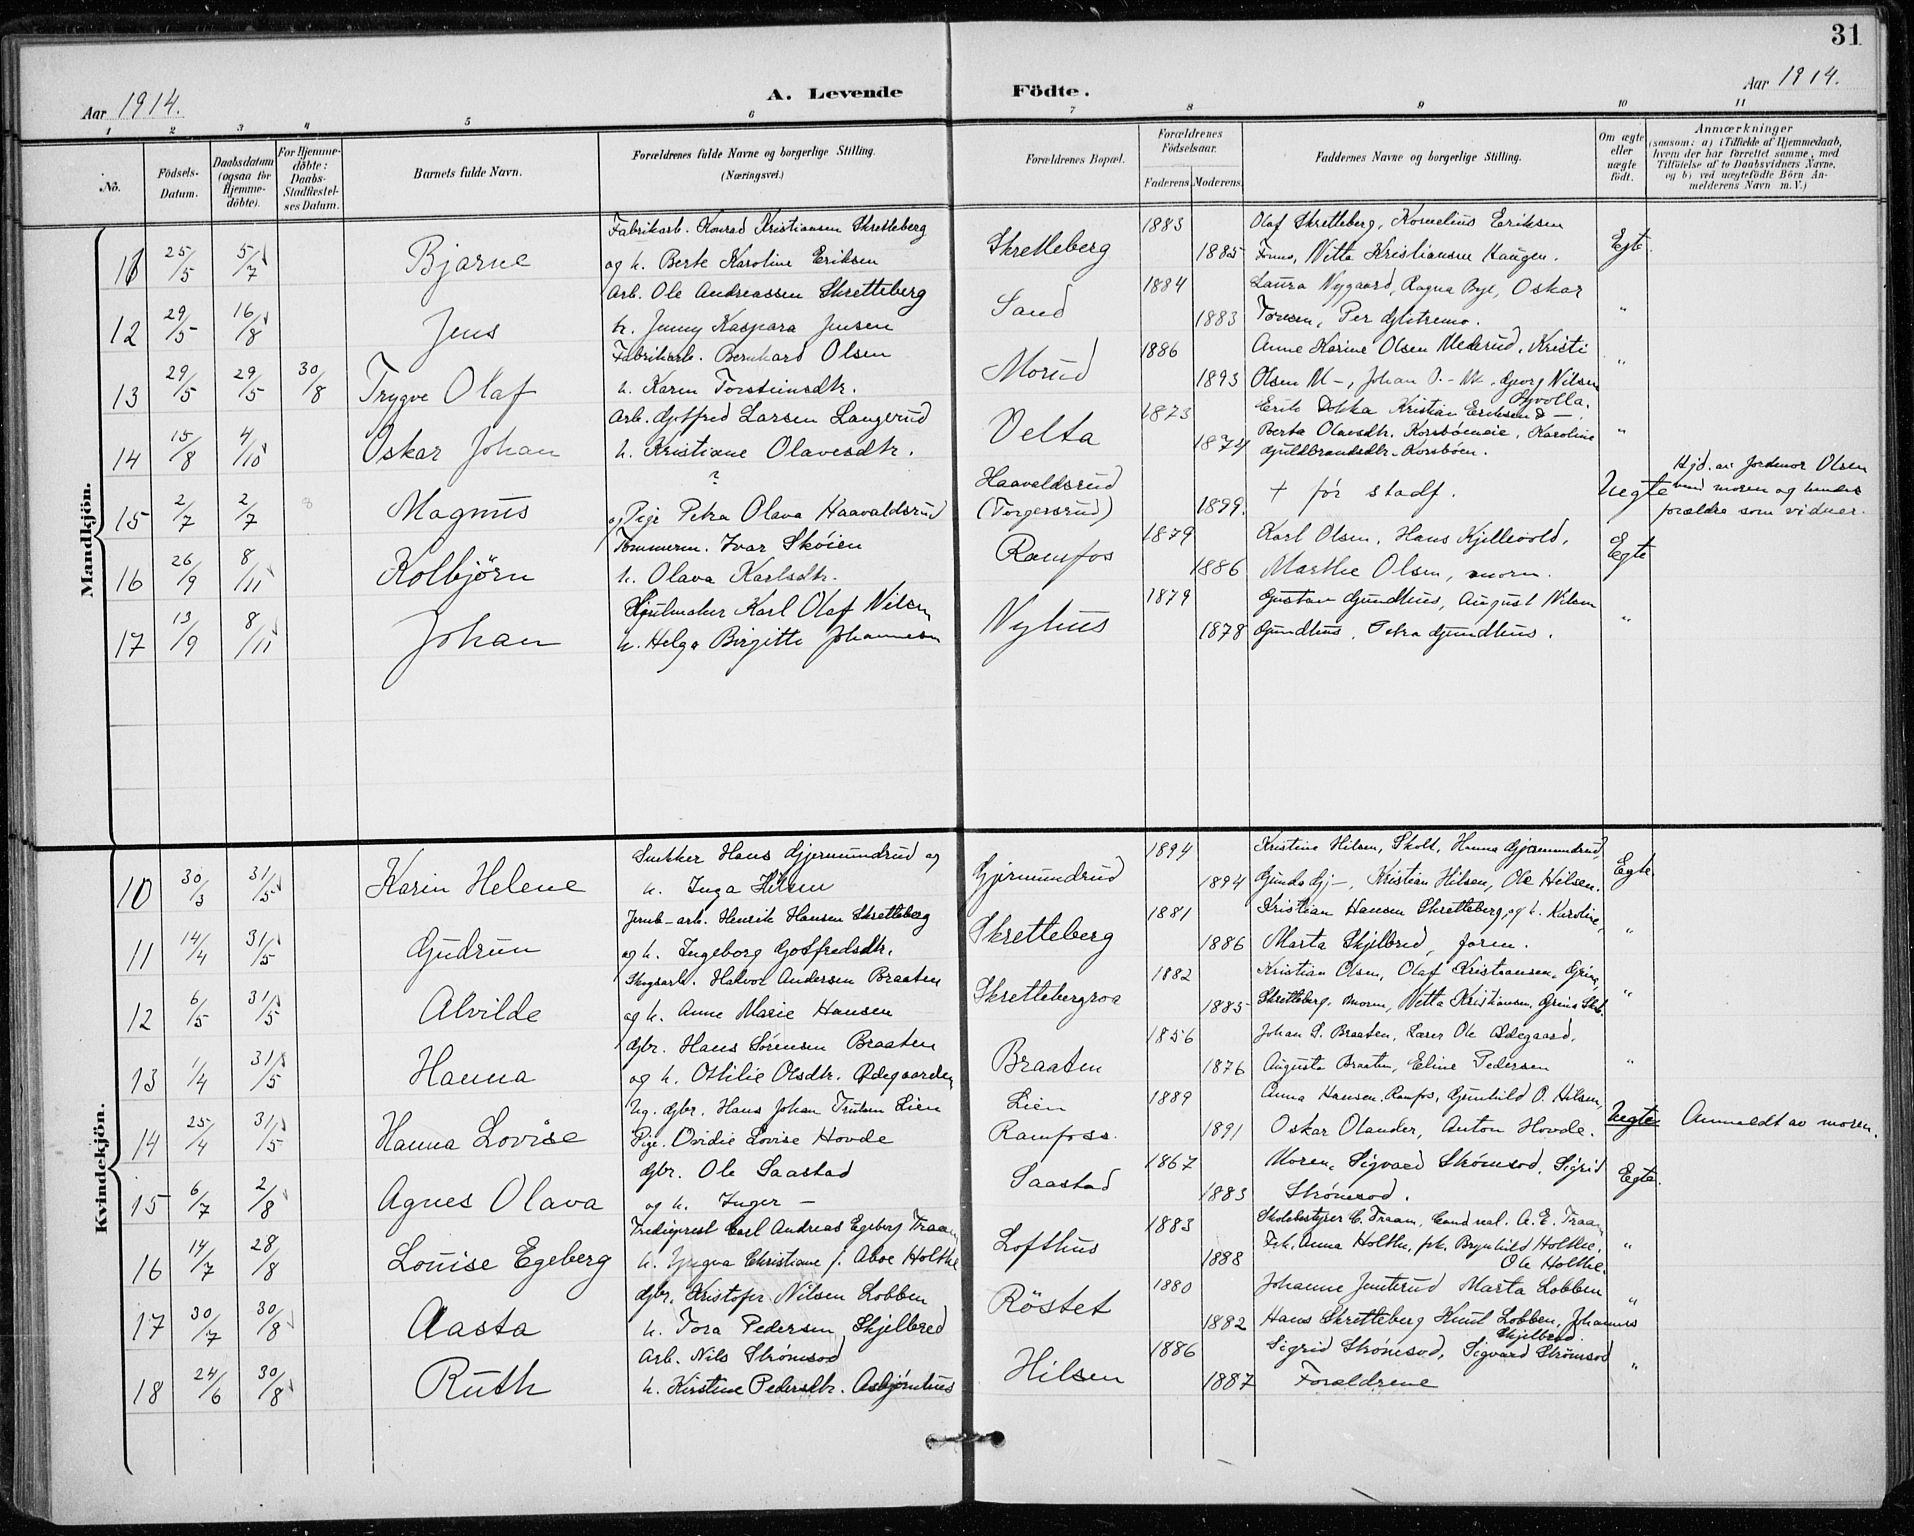 31
Aar 1914.
A. Levende Födte.
Aar 1914.
1 2 3 4 5 6 7 8 9 10 11
No.
Födsels-Datum.
Daabsdatum (ogsaa for Hjemme-döbte).
For Hjemme-döbte: Daabs-Stadfæstel-ses Datum.
Barnets fulde Navn.
Forældrenes fulde Navne og borgerlige Stilling. (Næringsvei.)
Forældrenes Bopæl.
Forældrenes Födselsaar.
Faderens. Moderens.
Faddernes Navne og borgerlige Stilling.
Om ægte eller uægte födt.
Anmærkninger (saasom: a) i Tilfælde af Hjemmedaab, hvem der har forrettet samme, med Tilföielse af to Daabsvidners Navne, og b) ved uægtefödte Börn An-melderens Navn m. V.)
Mandkjön.
Fabrikarb. Konrad Kristiansen Skretteberg 1883 Olaf Skretteberg, Kornelius Eriksen
11 25/5 5/7 Bjarne og h. Berte Karoline Eriksen Skretteberg 1885 Nitta Kristiansen Haugen. Egte
Arb. Ole Andreassen Skretteberg 1884 Laura Nygaard, Ragna Bye, Oskar
12 29/5 16/8 Jens h. Jenny Kaspara Jensen Sand 1883 Toresen, Per "
Fabrikarb. Bernhard Olsen 1886 Anne Karine Olsen Mederud, Kristi
13 29/5 29/5 30/8 Trygve Olaf h. Karen Torsteinsdtr. Morud 1893 Olsen M–, Johan Georg Nilsen "
Arb. Gotfred Larsen Langerud 1873 Erik Dokka Kristian Eriksen
14 15/8 4/10 Oskar Johan h. Kristiane Olavesdtr. Velta 1874 Berta Olavsdtr. Korsböeneie, Karoline "
Guldbrandsdtr. Korsböen.
?
15 2/7 2/7 Magnus og Pige Petra Olava Haavaldsrud Haavaldsrud (Torgersrud) 1899. + för stadf. Uegte
Hjd. av Jordmor Olsen
med moren og hendes
forældre som vidner.
Tömmerm. Ivar Sköien 1879 Karl Olsen, Hans Kjillevold,
16 26/9 8/11 Kolbjörn h. Olava Karlsdtr. Ramfos 1886 Marthe Olsen, morn. Egte
Hjulmaker Karl Olaf Nilsen 1879 Gustav Gundhus, August Nilsen
17 13/9 8/11 Johan h. Helga Birgitte Johannesen Nyhus 1878 Gundhus, Petra Gundhus. "
Kvindekjön.
Snekker Hans Gjermundrud og 1894 Kristine Hilsen, Skolt, Hanna Gjermundrud,
10 30/3 31/5 Karin Helene h. Inga Hilsen Gjermundrud 1894 Gunda Gj–, Kristian Hilsen, Ole Hilsen. Egte
Jernb-arb. Henrik Hansen Skretteberg 1881 Kristian Hansen Skretteberg, og h. Karoline,
11 14/4 31/5 Gudrun og h. Ingeborg Gotfredsdtr. Skretteberg 1886 Marta Skjelbred, faren. "
Skogsarb. Halvor Andersen Braaten 1882 Kristian Olsen, Olaf Kristiansen,
12 6/5 31/5 Alvilde og h. Anne Marie Hansen Skrettebergroa 1885 Skretteberg, morn, Nitta Kristiansen, "
Gbr. Hans Sörensen Braaten 1856 Johan S. Braaten, Lærer Ole Ödegaard,
13 1/4 31/5 Hanna og h. Othilie Olsdtr. Ödegaarden Braaten 1876 Augusta Braaten, Eline Pedersen "
Ug. gbr. Hans Johan Trulsen Lien Lien 1889 Anna Hansen. Ramfos, Gunhild O. Hilsen,
14 25/4 31/5 Hanna Lovise Pige Ovidie Lovise Hovde Ramfoss. 1891 Oskar Olander, Anton Hovde. Uegte Anmeldt av moren.
Gbr. Ole Saastad 1867 Moren, Sigvard Strömsod, Sigrid
15 6/7 2/8 Agnes Olava og h. Inger – Saastad 1883 Strömsod. Egte
Fredsprest Carl Andreas Egeberg Traaen 1883 Skolebestyrer C. Traaen, Cand real. A. E. Traaen
16 14/7 28/8 Louise Egeberg h. Yngva Christiane f. Aboe Holthe Lofthus 1888 Frk. Anna Holthe, frk. Brynhild Holthe, Ole Holthe. "
Gbr. Kristofer Nilsen Lobben 1880 Johanne Jenterud Marta Lobben
17 30/7 30/8 Aasta h. Tora Pedersen Skjelbred Röstet 1882 Hans Skretteberg Knut Lobben, Johannes Skjelbred. "
Arb. Nils Strömsod 1886 Sigrid Strömsod, Sigvard Strömsod
18 24/6 30/8 Ruth h. Kirstine Pedersdtr. Asbjörnhus Hilsen 1887 Forældrene "